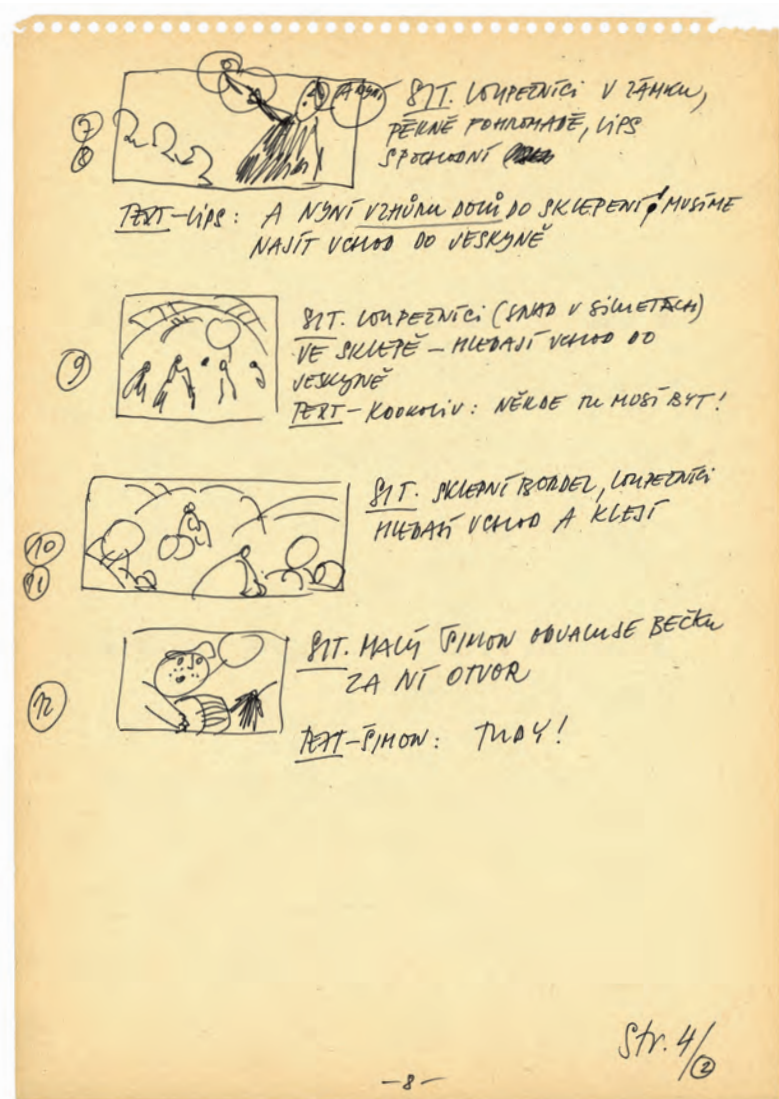 7
8
A nyní
SIT. LOUPEŽNÍCI V ZÁMKU,
PĚKNĚ POHROMADĚ, LIPS
S POCHODNÍ
TEXT-LIPS: A NYNÍ VZHŮRU DOLŮ DO SKLEPENÍ! MUSÍME
NAJÍT VCHOD DO JESKYNĚ
9
SIT. LOUPEŽNÍCI (SNAD V SILUETÁCH)
VE SKLEPĚ – HLEDAJÍ VCHOD DO
JESKYNĚ
TEXT – KODKOLIV: NĚKDE TU MUSÍ BÝT!
10
11
SIT. SKLEPNÍ BORDEL, LOUPEŽNÍCI
HLEDAJÍ VCHOD A KLEJÍ
12
SIT. MALÝ ŠIMON ODVALUJE BEČKU
ZA NÍ OTVOR
TEXT-ŠIMON: TUDY!
Str. 4/2
-8-